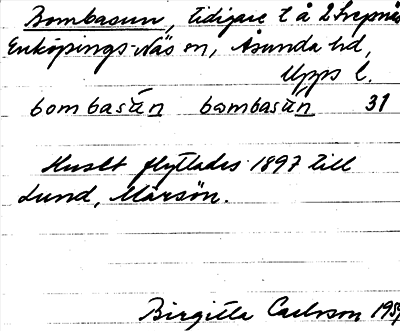 Bombasun, tidigare t å 2
Enköpings-Näs sn, Åsunda hd,
Upps l.
bombasun bombasun 31
Huset flyttades 1897 till
Lund, Märsön.
Birgitta Carlsson 195